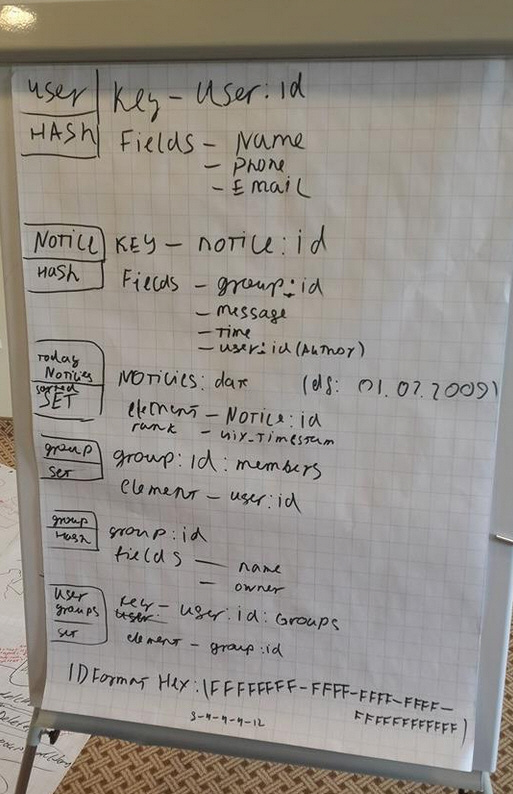 User
HASH
Key - User:id
Fields - Name
- phone
- Email
NOTICE
Hash
KEY - notice:id
Fields - group:id
- message
- Time
- user:id (Author)
Today
Noticies
sorted
SET
NOTICIES: date
01.02.2009)
element - Notice:id
rank - unix_timestam
group
set
group:id:members
element - user:id
group
Hash
group:id
fields - name
- owner
User
groups
set
key - user:id:Groups
element - group:id
ID Format Hex: (FFFFFFFF-FFFF-FFFF-FFFF-
FFFFFFFFFFFF)
-4-4-4-12